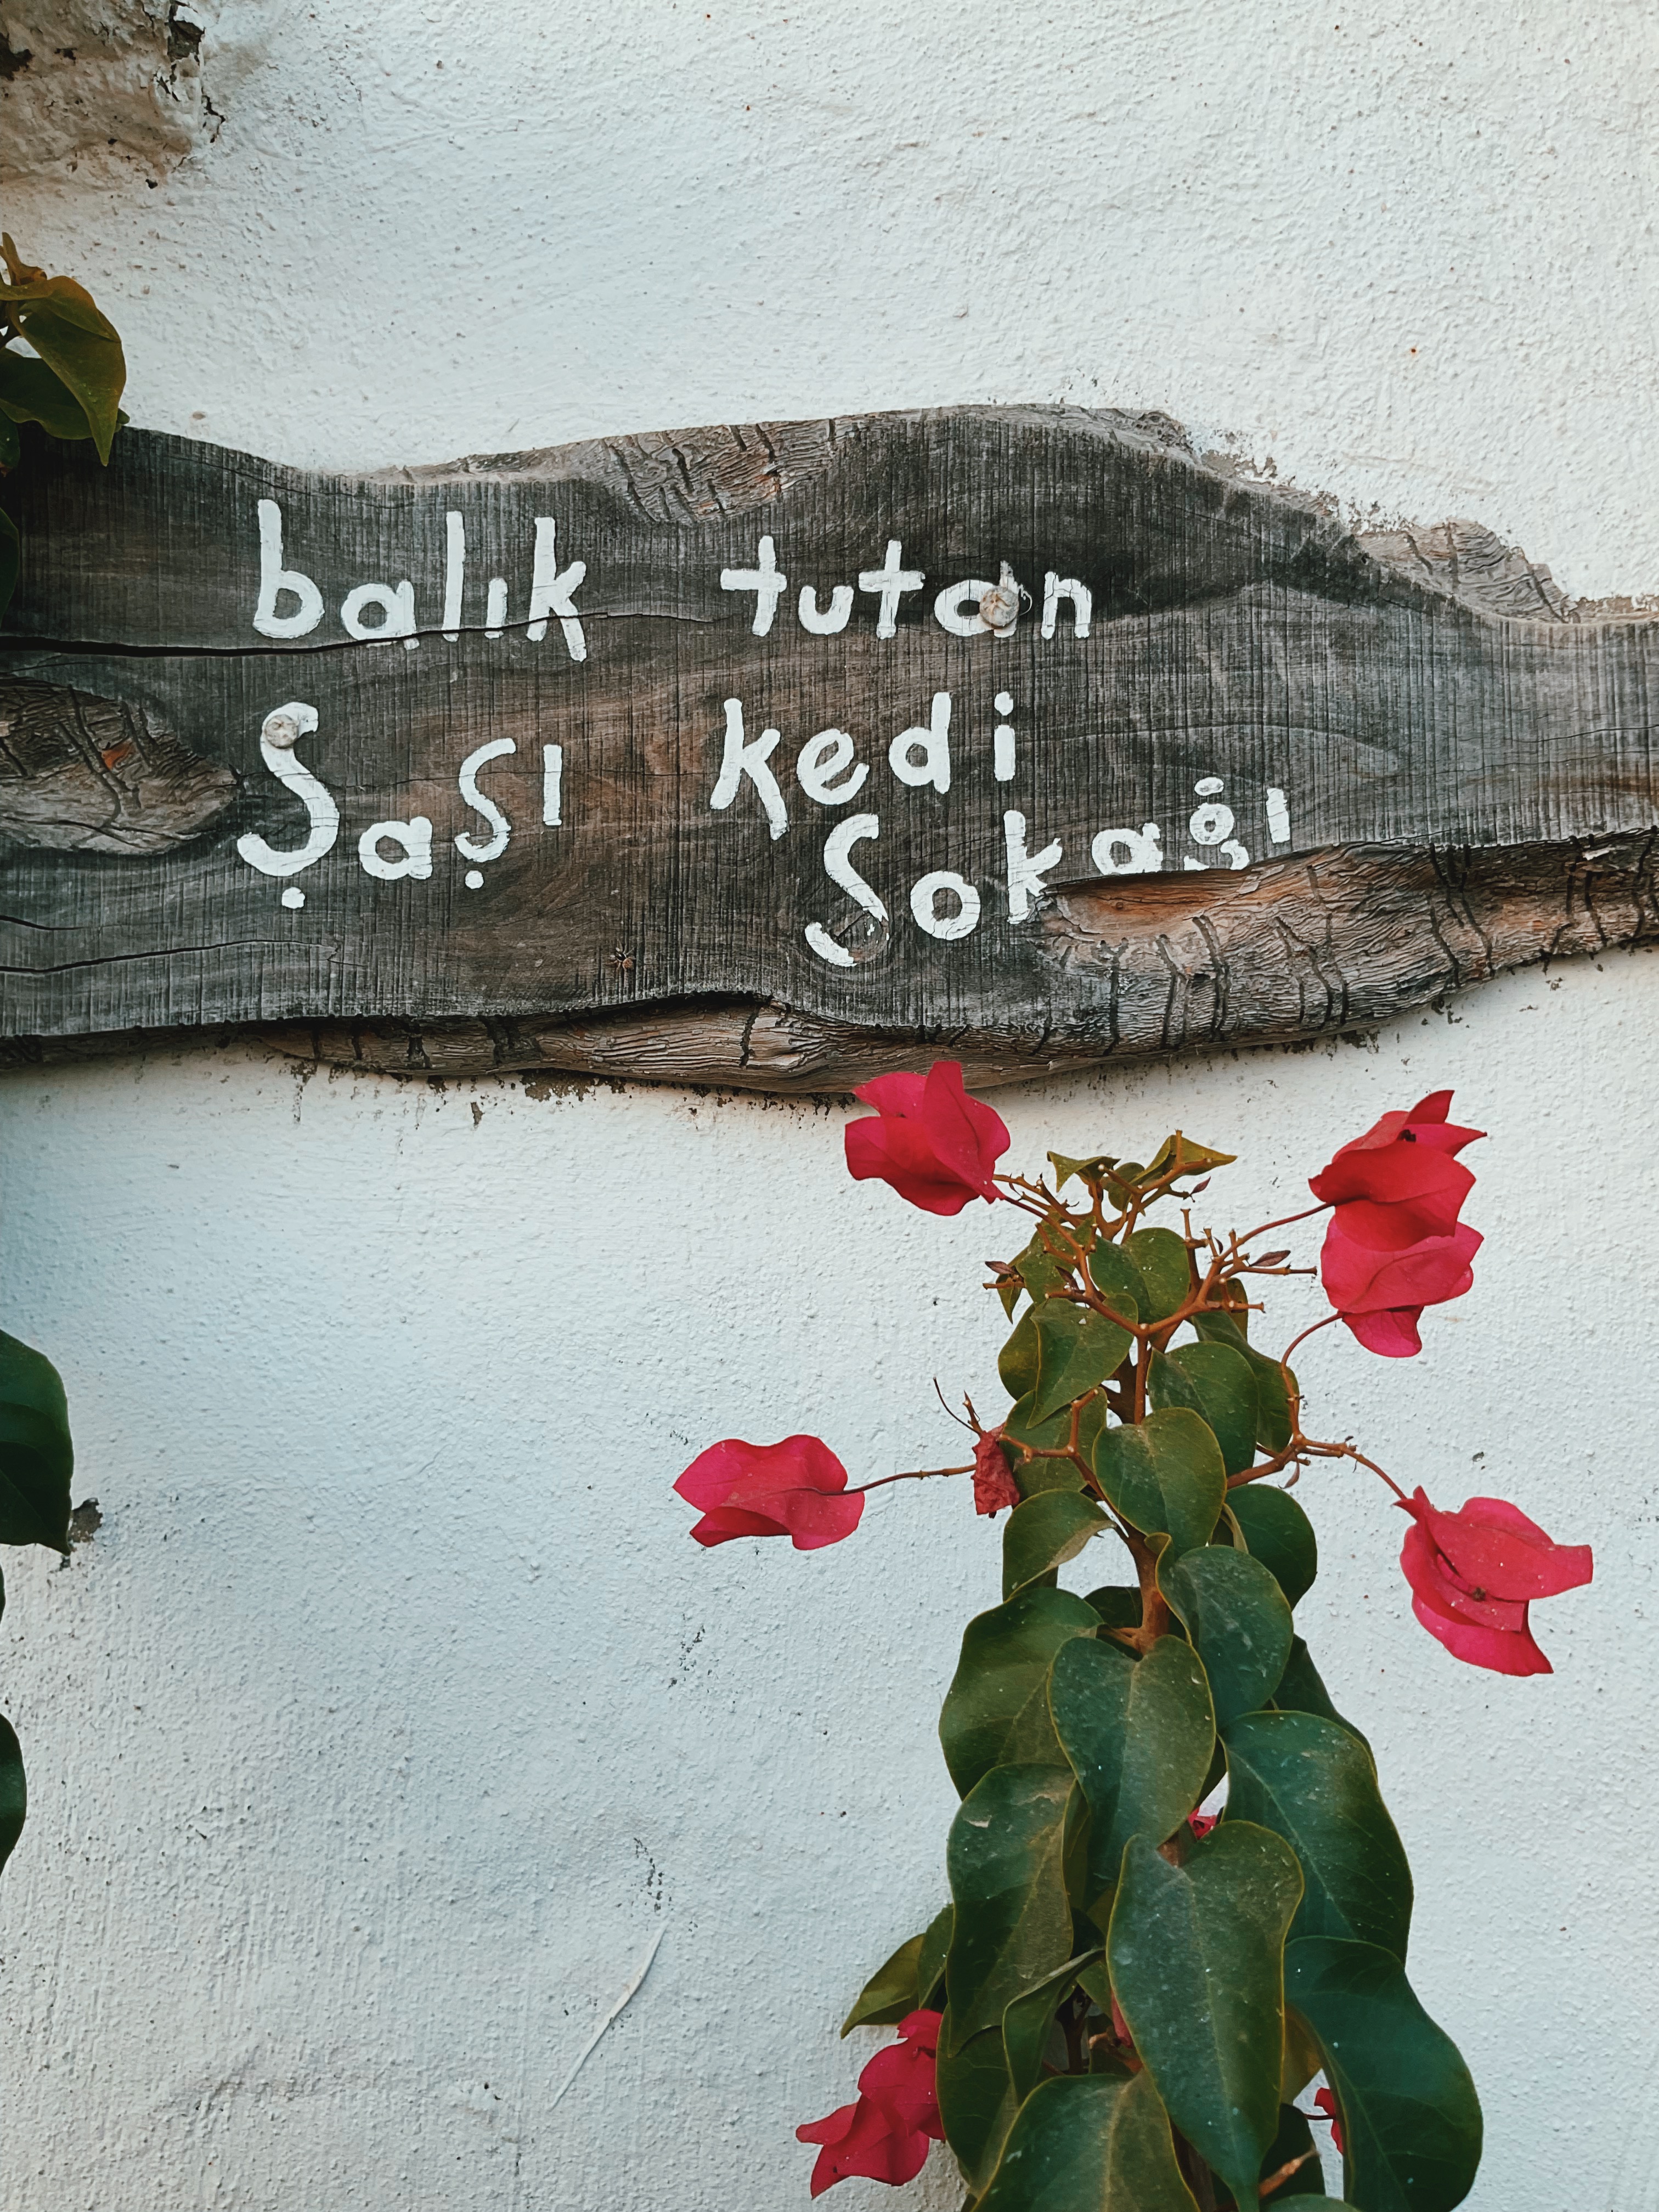 balık tutan
Şaşı kedi
Sokağı